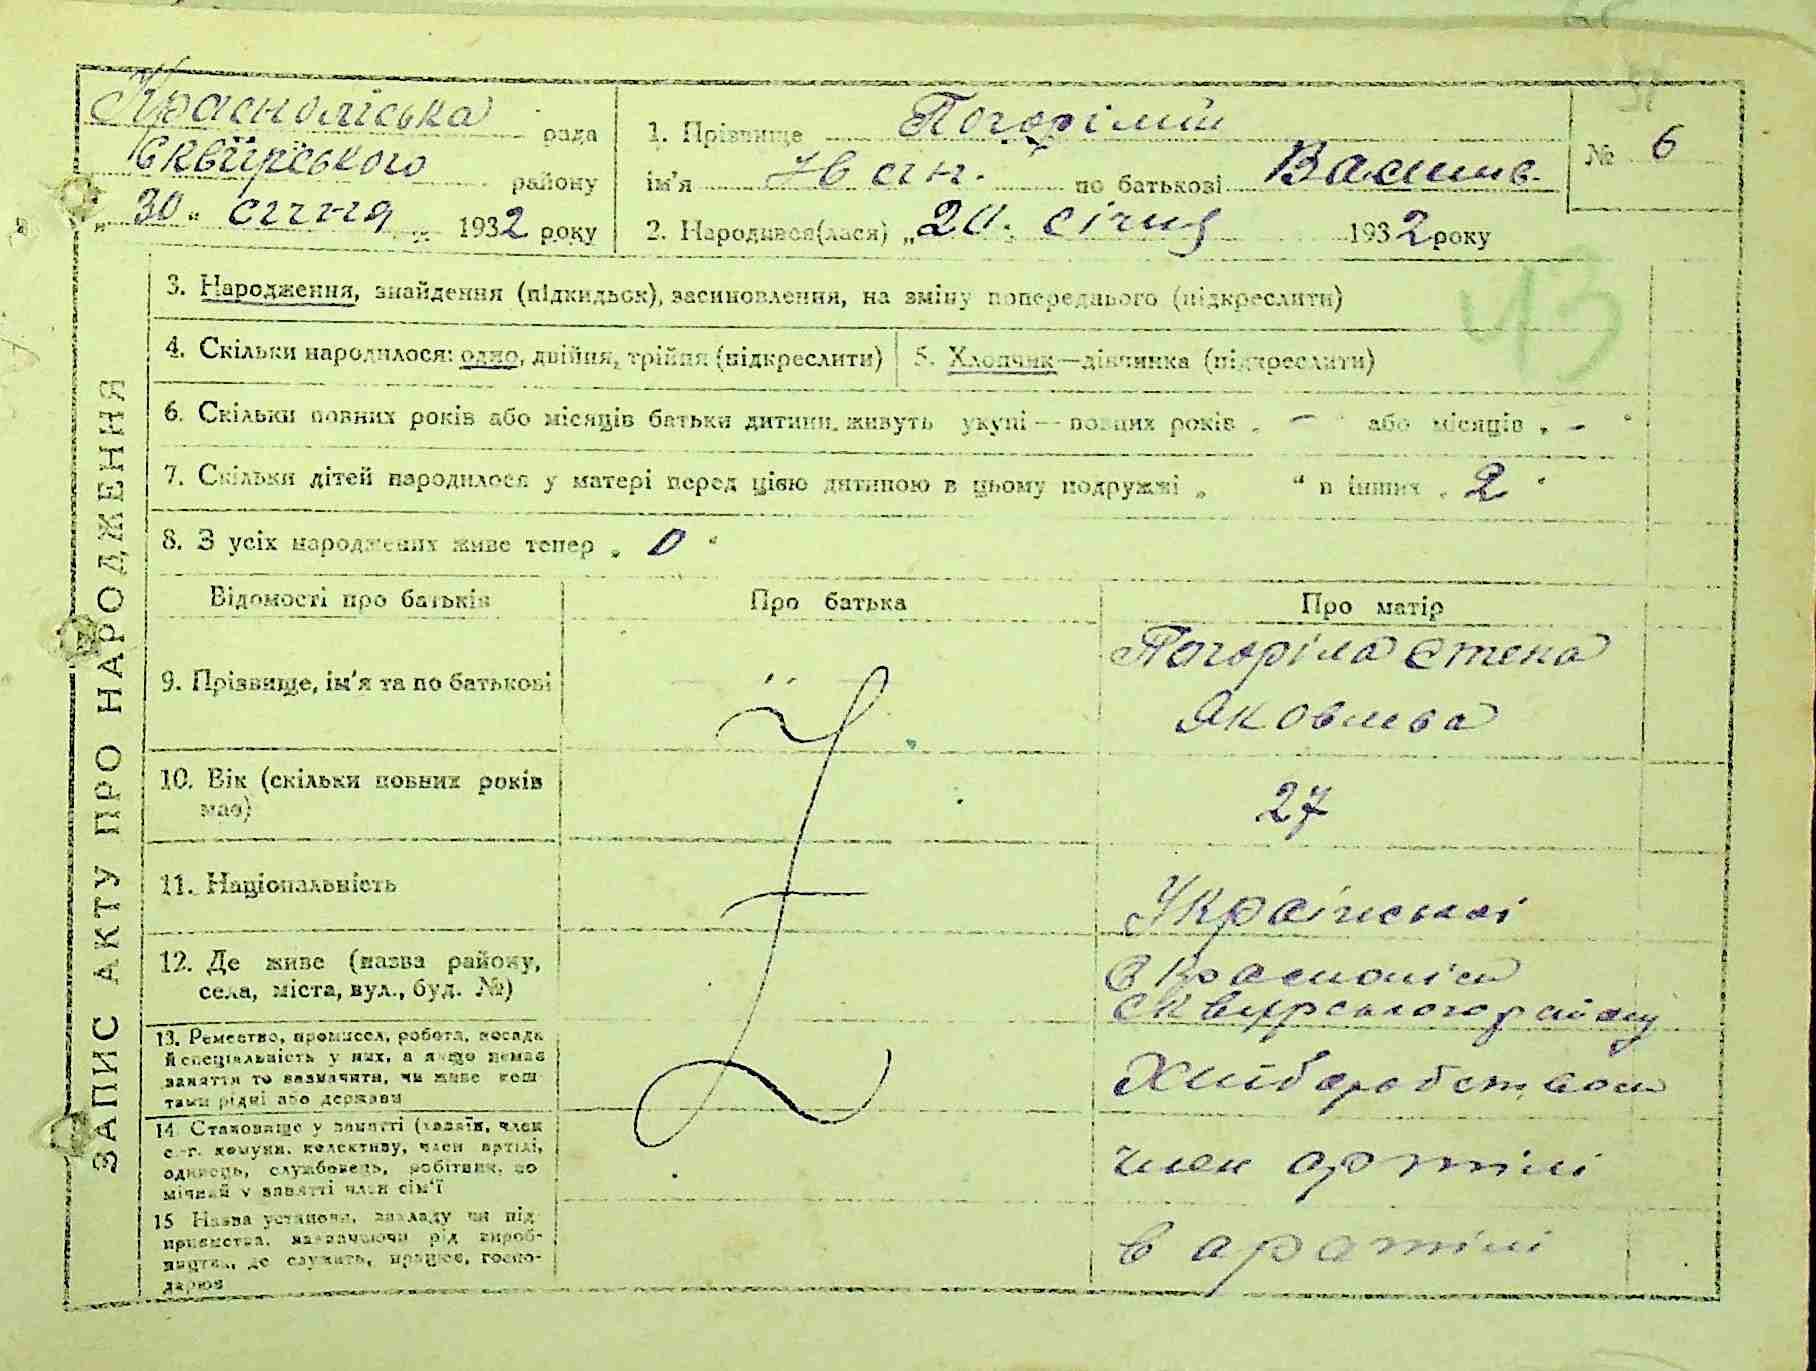 Красноліська рада
Сквирського району
„30“ січня 1932 року
1. Прізвище Погорілий
ім'я Іван. по батькові Васильв.
2. Народився(лася) „20. січня 1932 року
№ 6
43
ЗАПИС АКТУ ПРО НАРОДЖЕННЯ
3. Народження, знайдення (підкидьок), засиновлення, на зміну попереднього (підкреслити)
4. Скільки народилося: одно, двійня, трійня (підкреслити)
5. Хлопчик—дівчинка (підкреслити)
6. Скільки повних років або місяців батьки дитини живуть укупі — повних років „ – “ або місяців „ – “
7. Скільки дітей народилося у матері перед цією дитиною в цьому подружжі „ “ в інших „ 2 “
8. З усіх народжених живе тепер „ 0 “
Відомості про батьків
Про батька
Про матір
9. Прізвище, ім'я та по батькові
Погоріла Степа
Яковлева
10. Вік (скільки повних років
має)
27
11. Національність
Українськ
12. Де живе (назва району,
села, міста, вул., буд. №)
в Краснолісі
Сквирського району
13. Ремество, промисел, робота, посада
й спеціальність у них, а якщо немає
заняття то зазначити, чи живе кош-
тами рідні або держави
Хліборобством
14. Становище у занятті (хазяїн, член
с.-г. комуни, колективу, член артілі,
одинець, службовець, робітник, по
мічний у занятті член сім'ї
член артілі
15 Назва установи, закладу чи під-
приємства, зазначаючи рід вироб-
ництва, де служить, працює, госпо-
дарює
в аратілі